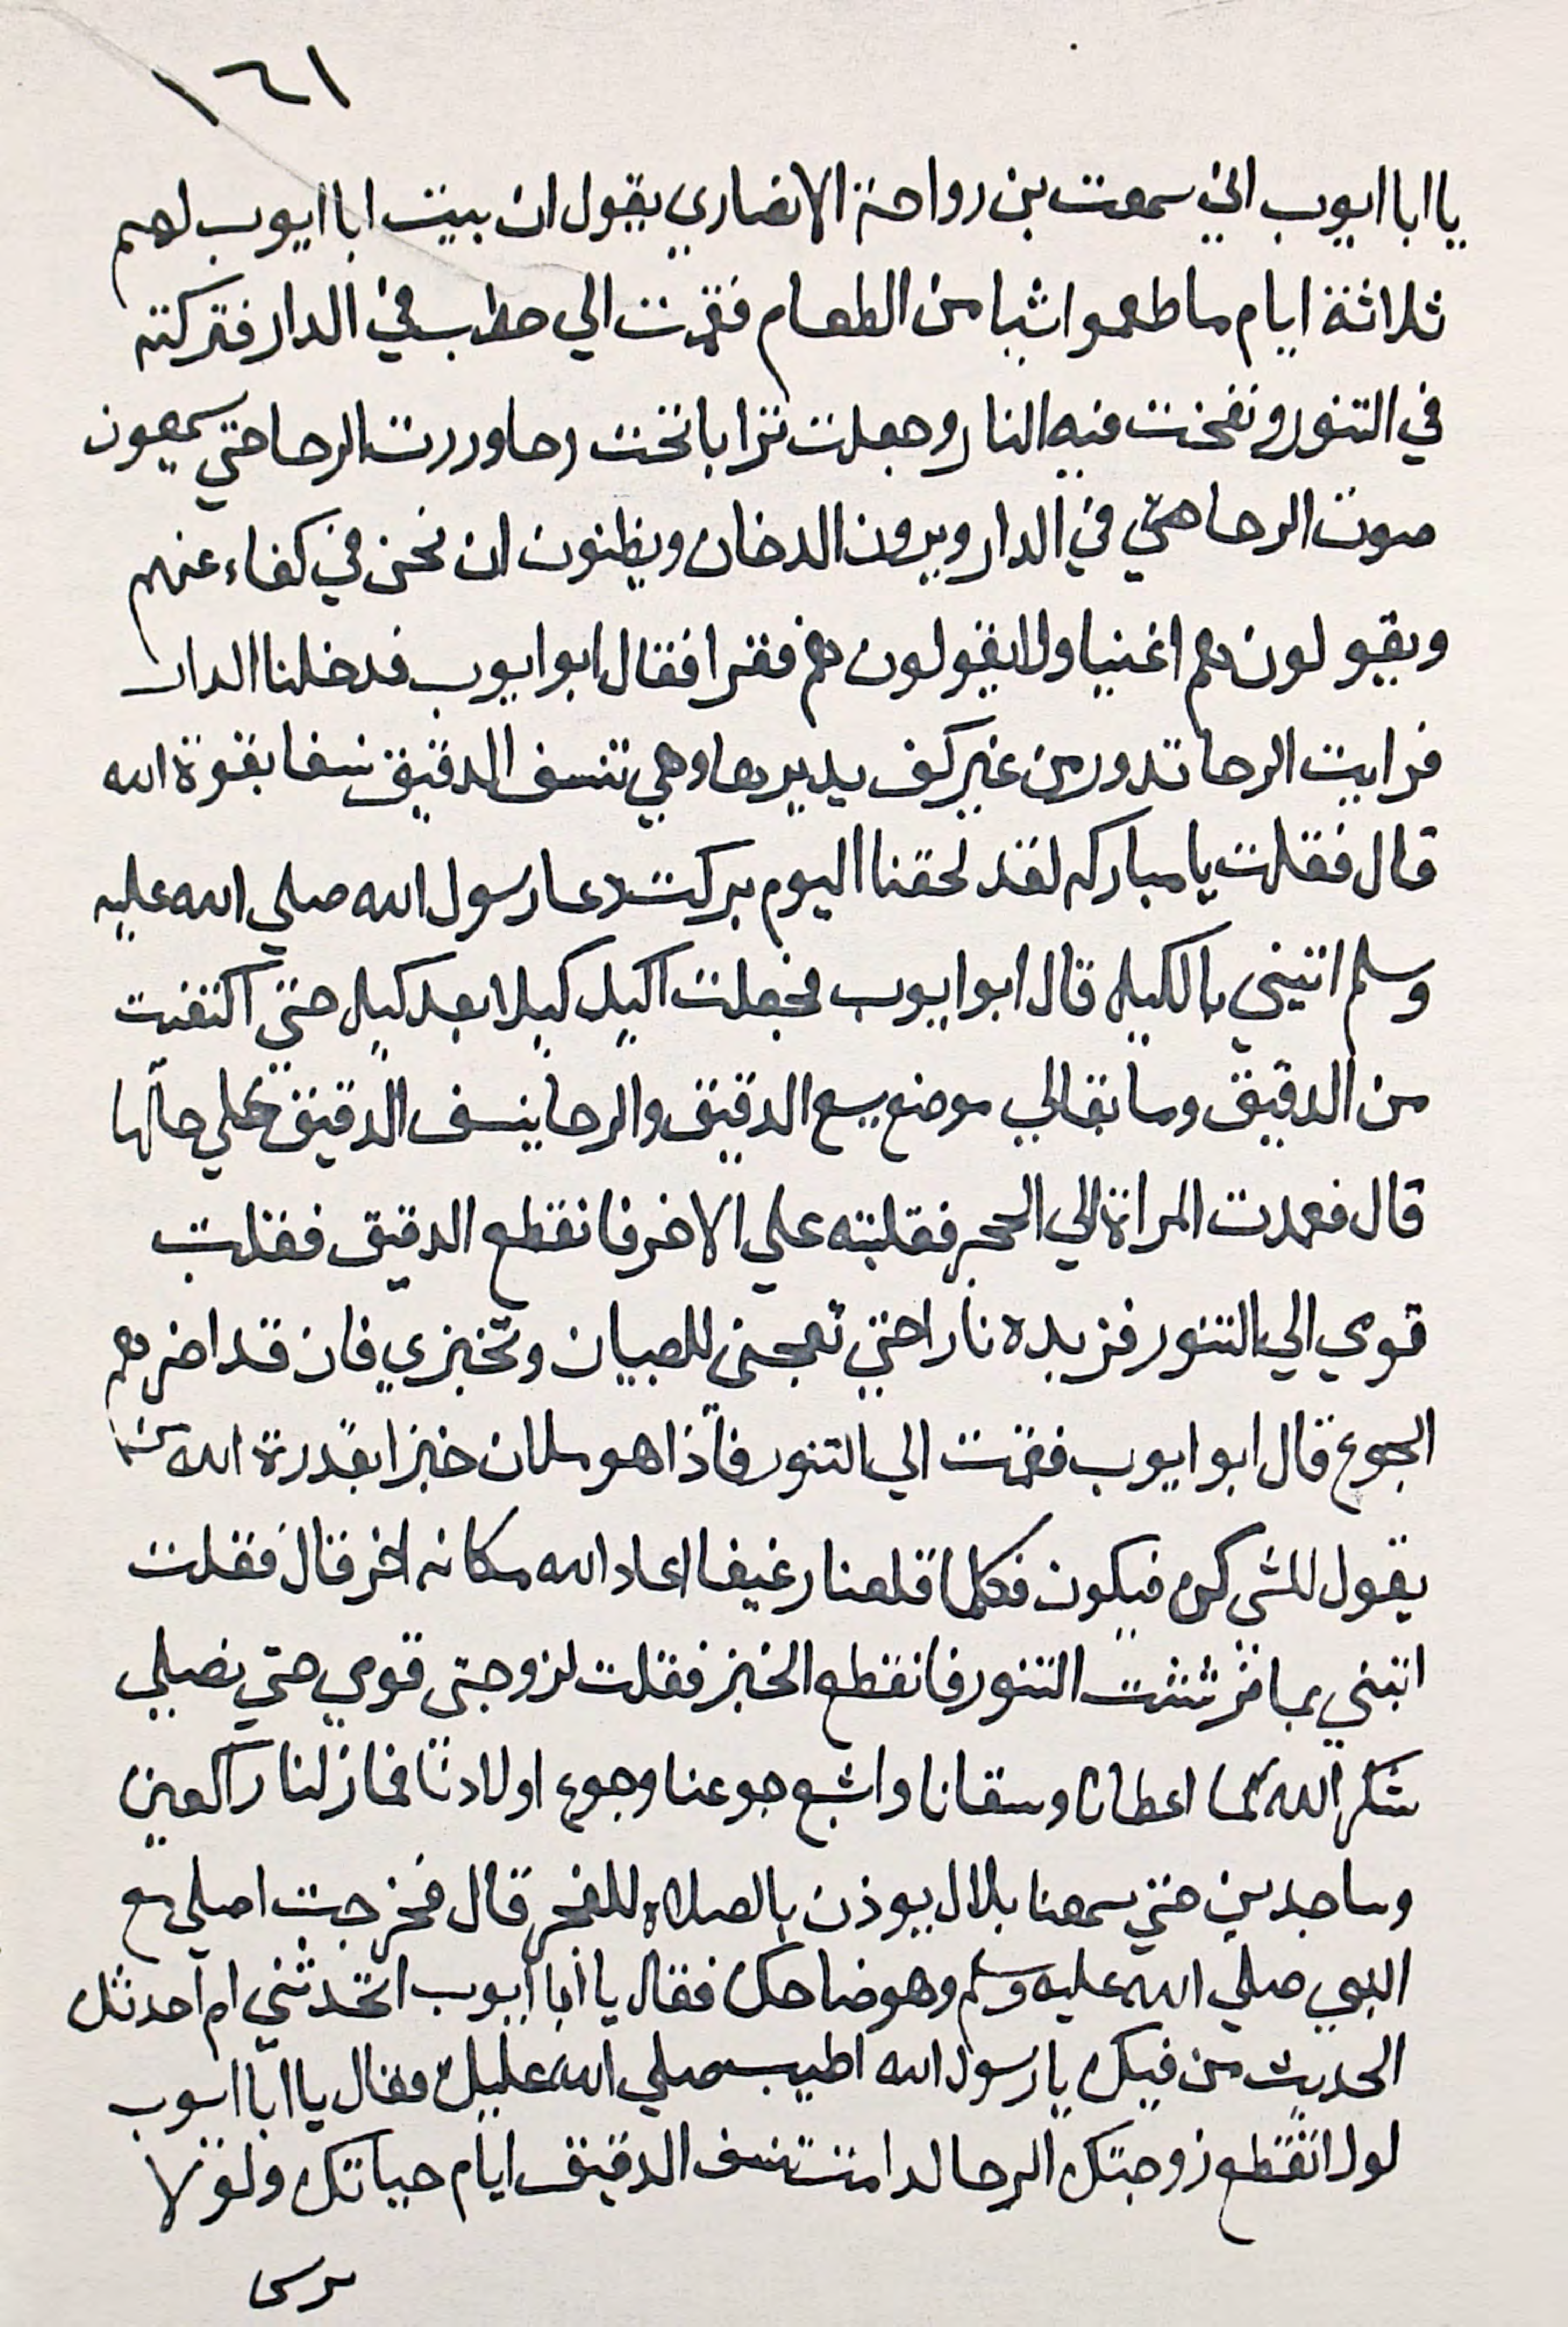 ١٦١
يا ابا ايوب اني سمعت بن رواحة الانصاري يقول ان بيت ابا ايوب لهم
ثلاثة ايام ما طعموا شيا من الطعام فقمت الي حطب في الدار فتركته
في التنور ونفخت فيه النار وجعلت ترابا تحت رحا ودرت الرحا حتي يسمعون
صوت الرحا حتي في الدار ويرون الدخان ويظنون ان نحن في كفاء عنهم
ويقولون هم اغنيا ولا يقولون هم فقرا فقال ابو ايوب فدخلنا الدار
فرايت الرحا تدور من غير كف يديرها وهي تنسف الدقيق نسفا بقوة الله
قال فقلت يا مباركه لقد لحقنا اليوم بركت دعا رسول الله صلي الله عليه
وسلم اتيني بالكيله قال ابو ايوب فجعلت اكيل كيلا بعد كيله حتي اكتفيت
من الدقيق وما بقالي موضع يسع الدقيق والرحا ينسف الدقيق علي حالها
قال فعمدت المراة الي الحجر فقلبته علي الاخر فانقطع الدقيق فقلت
قومي الي التنور فزيده نارا حتي تعجني للصبيان وتخبزي فان قد اضرهم
الجوع قال ابو ايوب فقمت الي التنور فاذا هو ملان خبزا بقدرة الله من
يقول للشي كن فيكون فكلما قلعنا رغيفا اعاد الله مكانه اخر قال فقلت
اتيني بما فرششت التنور فانقطع الخبز فقلت لزوجتي قومي حتي نصلي
شكر الله كما اعطانا وسقانا واشبع جوعنا وجوع اولادنا فمازلنا راكعين
وساجدين حتي سمعنا بلال يوذن بالصلاه للفجر قال فخرجت اصلي مع
النبي صلي الله عليه وسلم وهو ضاحك فقال يا ابا ايوب اتحدثني ام احدثك
الحديث من فيك يا رسول الله اطيب صلي الله عليك فقال يا ابا ايوب
لولا انقطع زوجتك الرحا لدامت تنسف الدقيق ايام حياتك ولولا